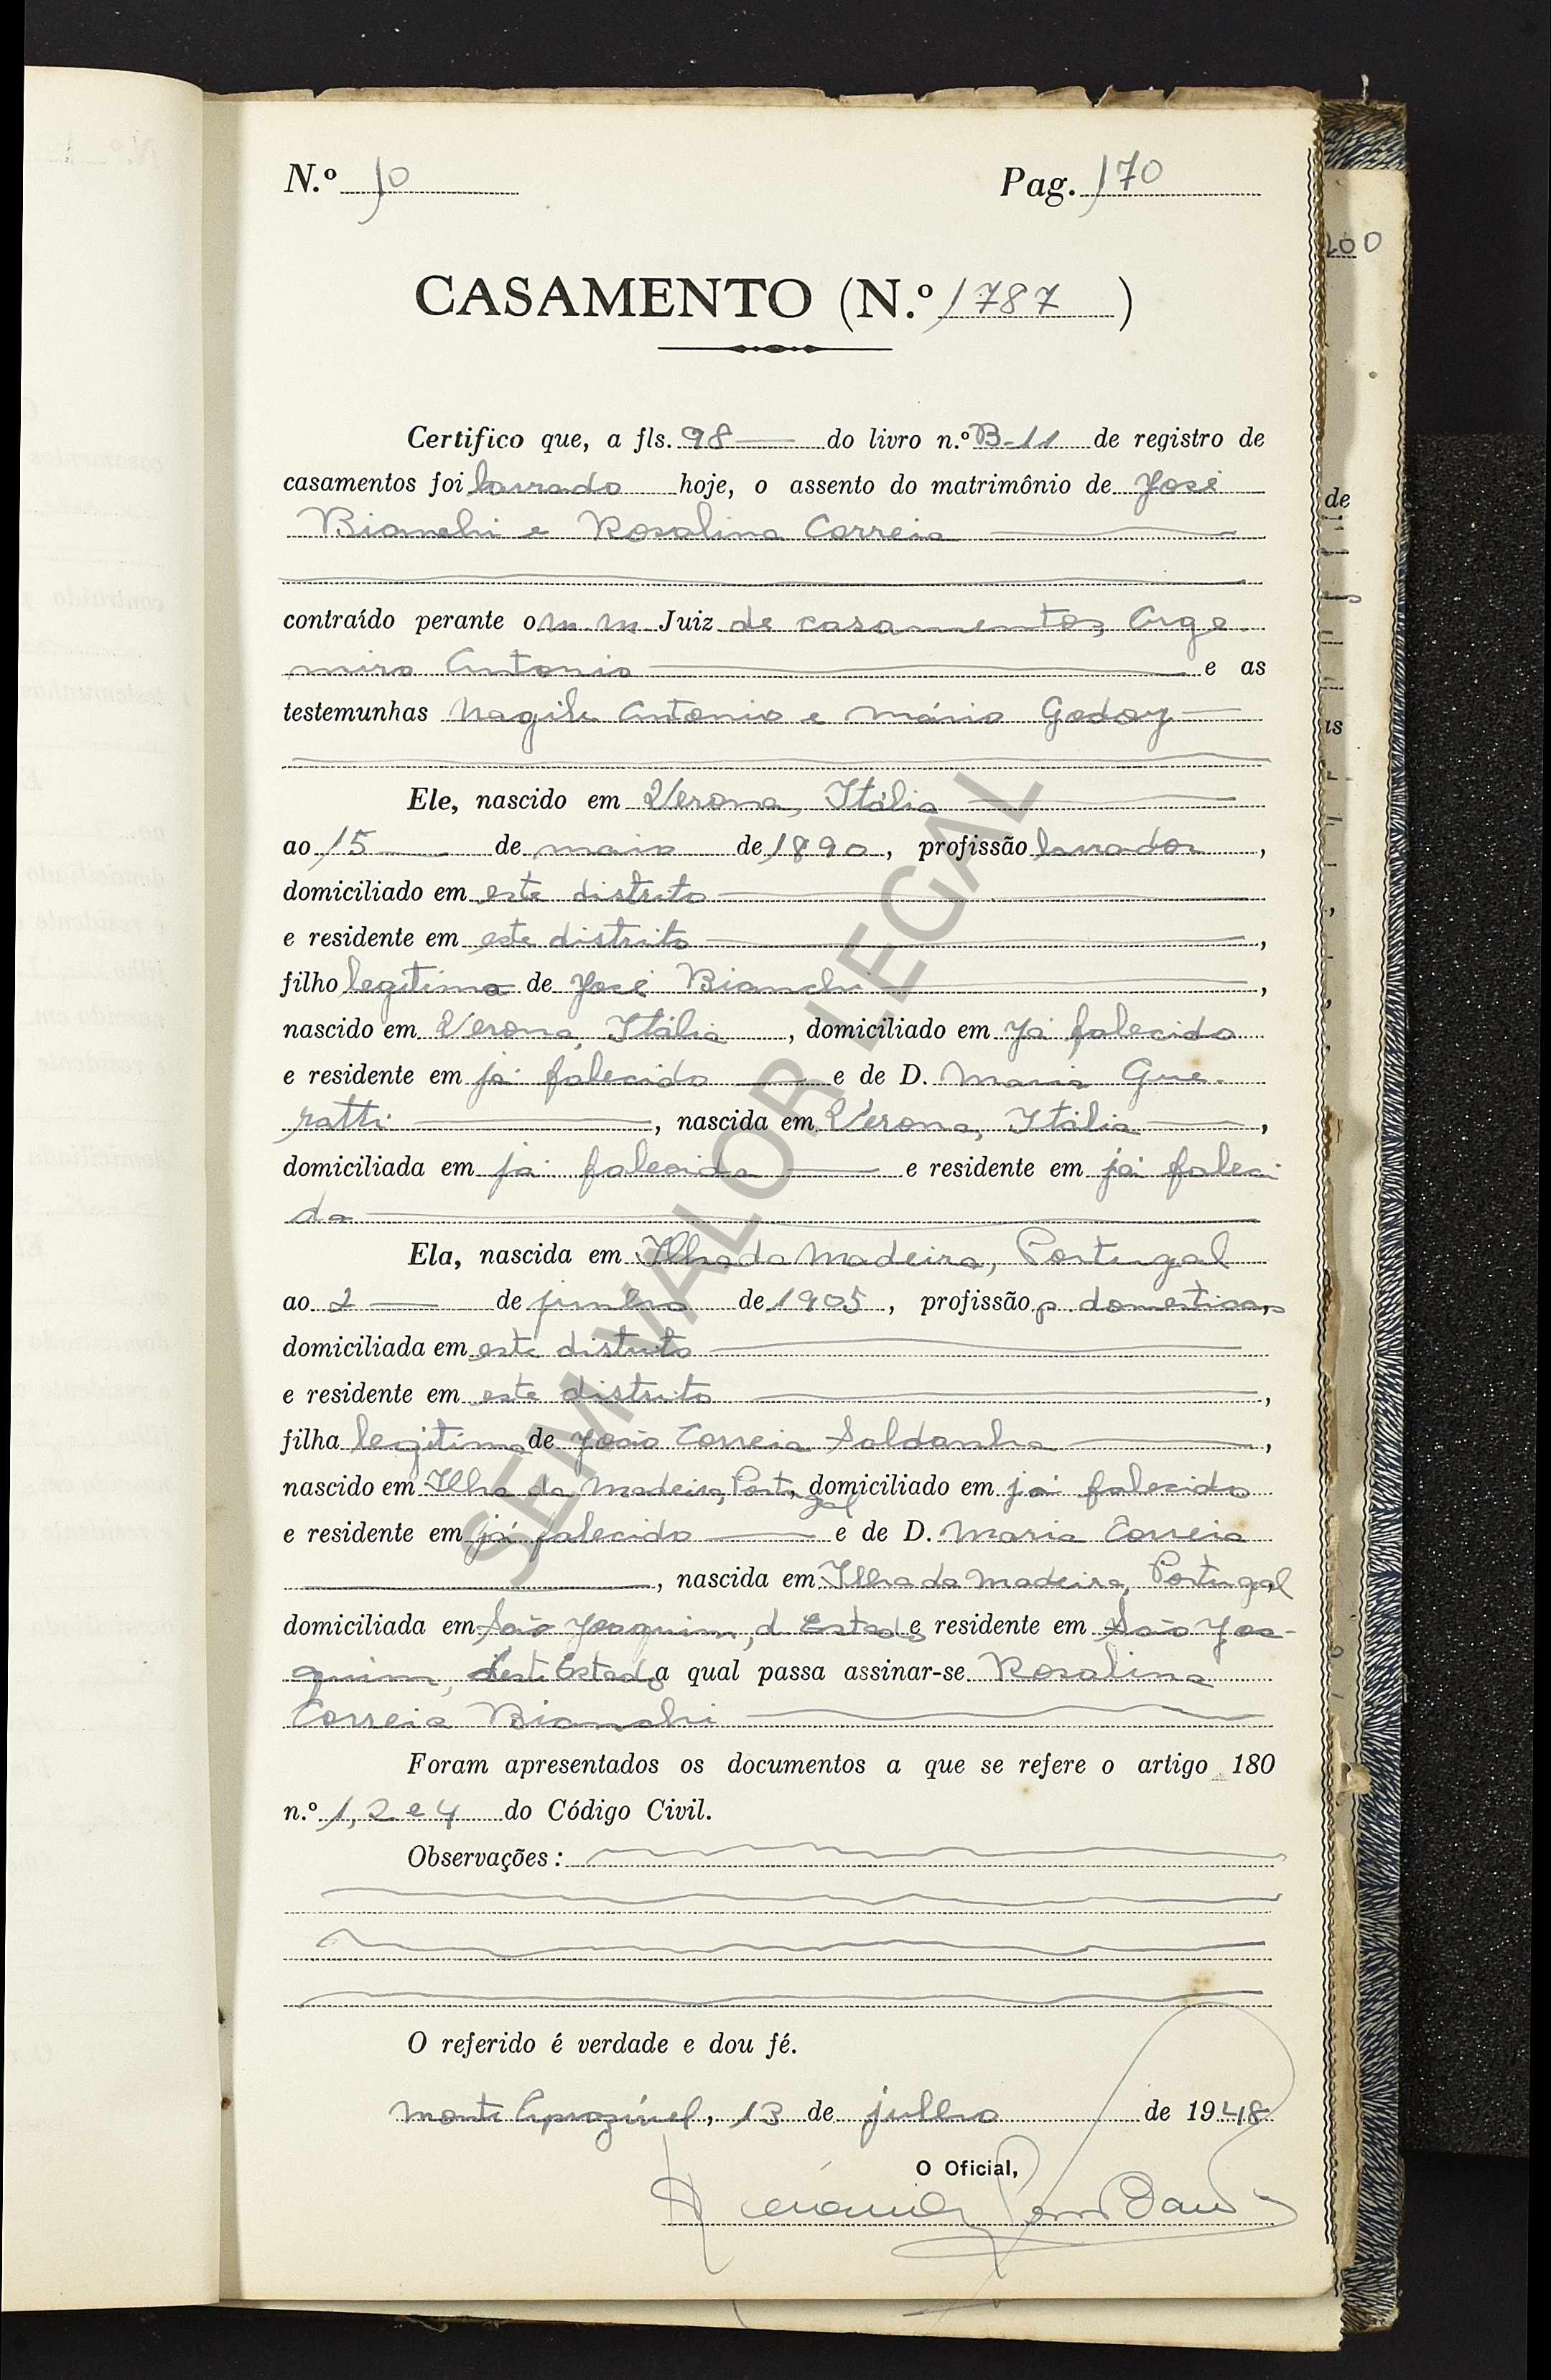 N.º 10 Pag. 170
100
CASAMENTO (N.º 1787)
Certifico que, a fls. 98 do livro n.º B-11 de registro de
casamentos foi lavrado hoje, o assento do matrimônio de José
de
Bianchi e Rosalina Correia
contraído perante o m. m. Juiz de casamentos, Arge-
miro Antonio e as
testemunhas Nagib Antonio e Mário Godoy
us
Ele, nascido em Verona, Itália
ao 15 de maio de 1890, profissão lavrador,
domiciliado em este distrito
e residente em este distrito,
filho legitimo de José Bianchi,
nascido em Verona, Itália, domiciliado em já falecido
e residente em já falecido e de D. Maria Gue-
ratti, nascida em Verona, Itália,
domiciliada em já falecida e residente em já faleci-
da
Ela, nascida em Ilha da Madeira, Portugal
ao 2 de junho de 1905, profissão p. domesticas,
domiciliada em este distrito
e residente em este distrito,
filha legitima de João Correia Saldanha,
nascido em Ilha da Madeira, Portugal, domiciliado em já falecido
e residente em já falecido e de D. Maria Correia
, nascida em Ilha da Madeira, Portugal
domiciliada em São Joaquim, d. Estado e residente em São Joa-
quim, deste Estado a qual passa assinar-se Rosalina
Correia Bianchi
Foram apresentados os documentos a que se refere o artigo 180
n.º 1, 2 e 4 do Código Civil.
Observações:
O referido é verdade e dou fé.
Monte Aprazível, 13 de julho de 1948
O Oficial,
SEM VALOR LEGAL